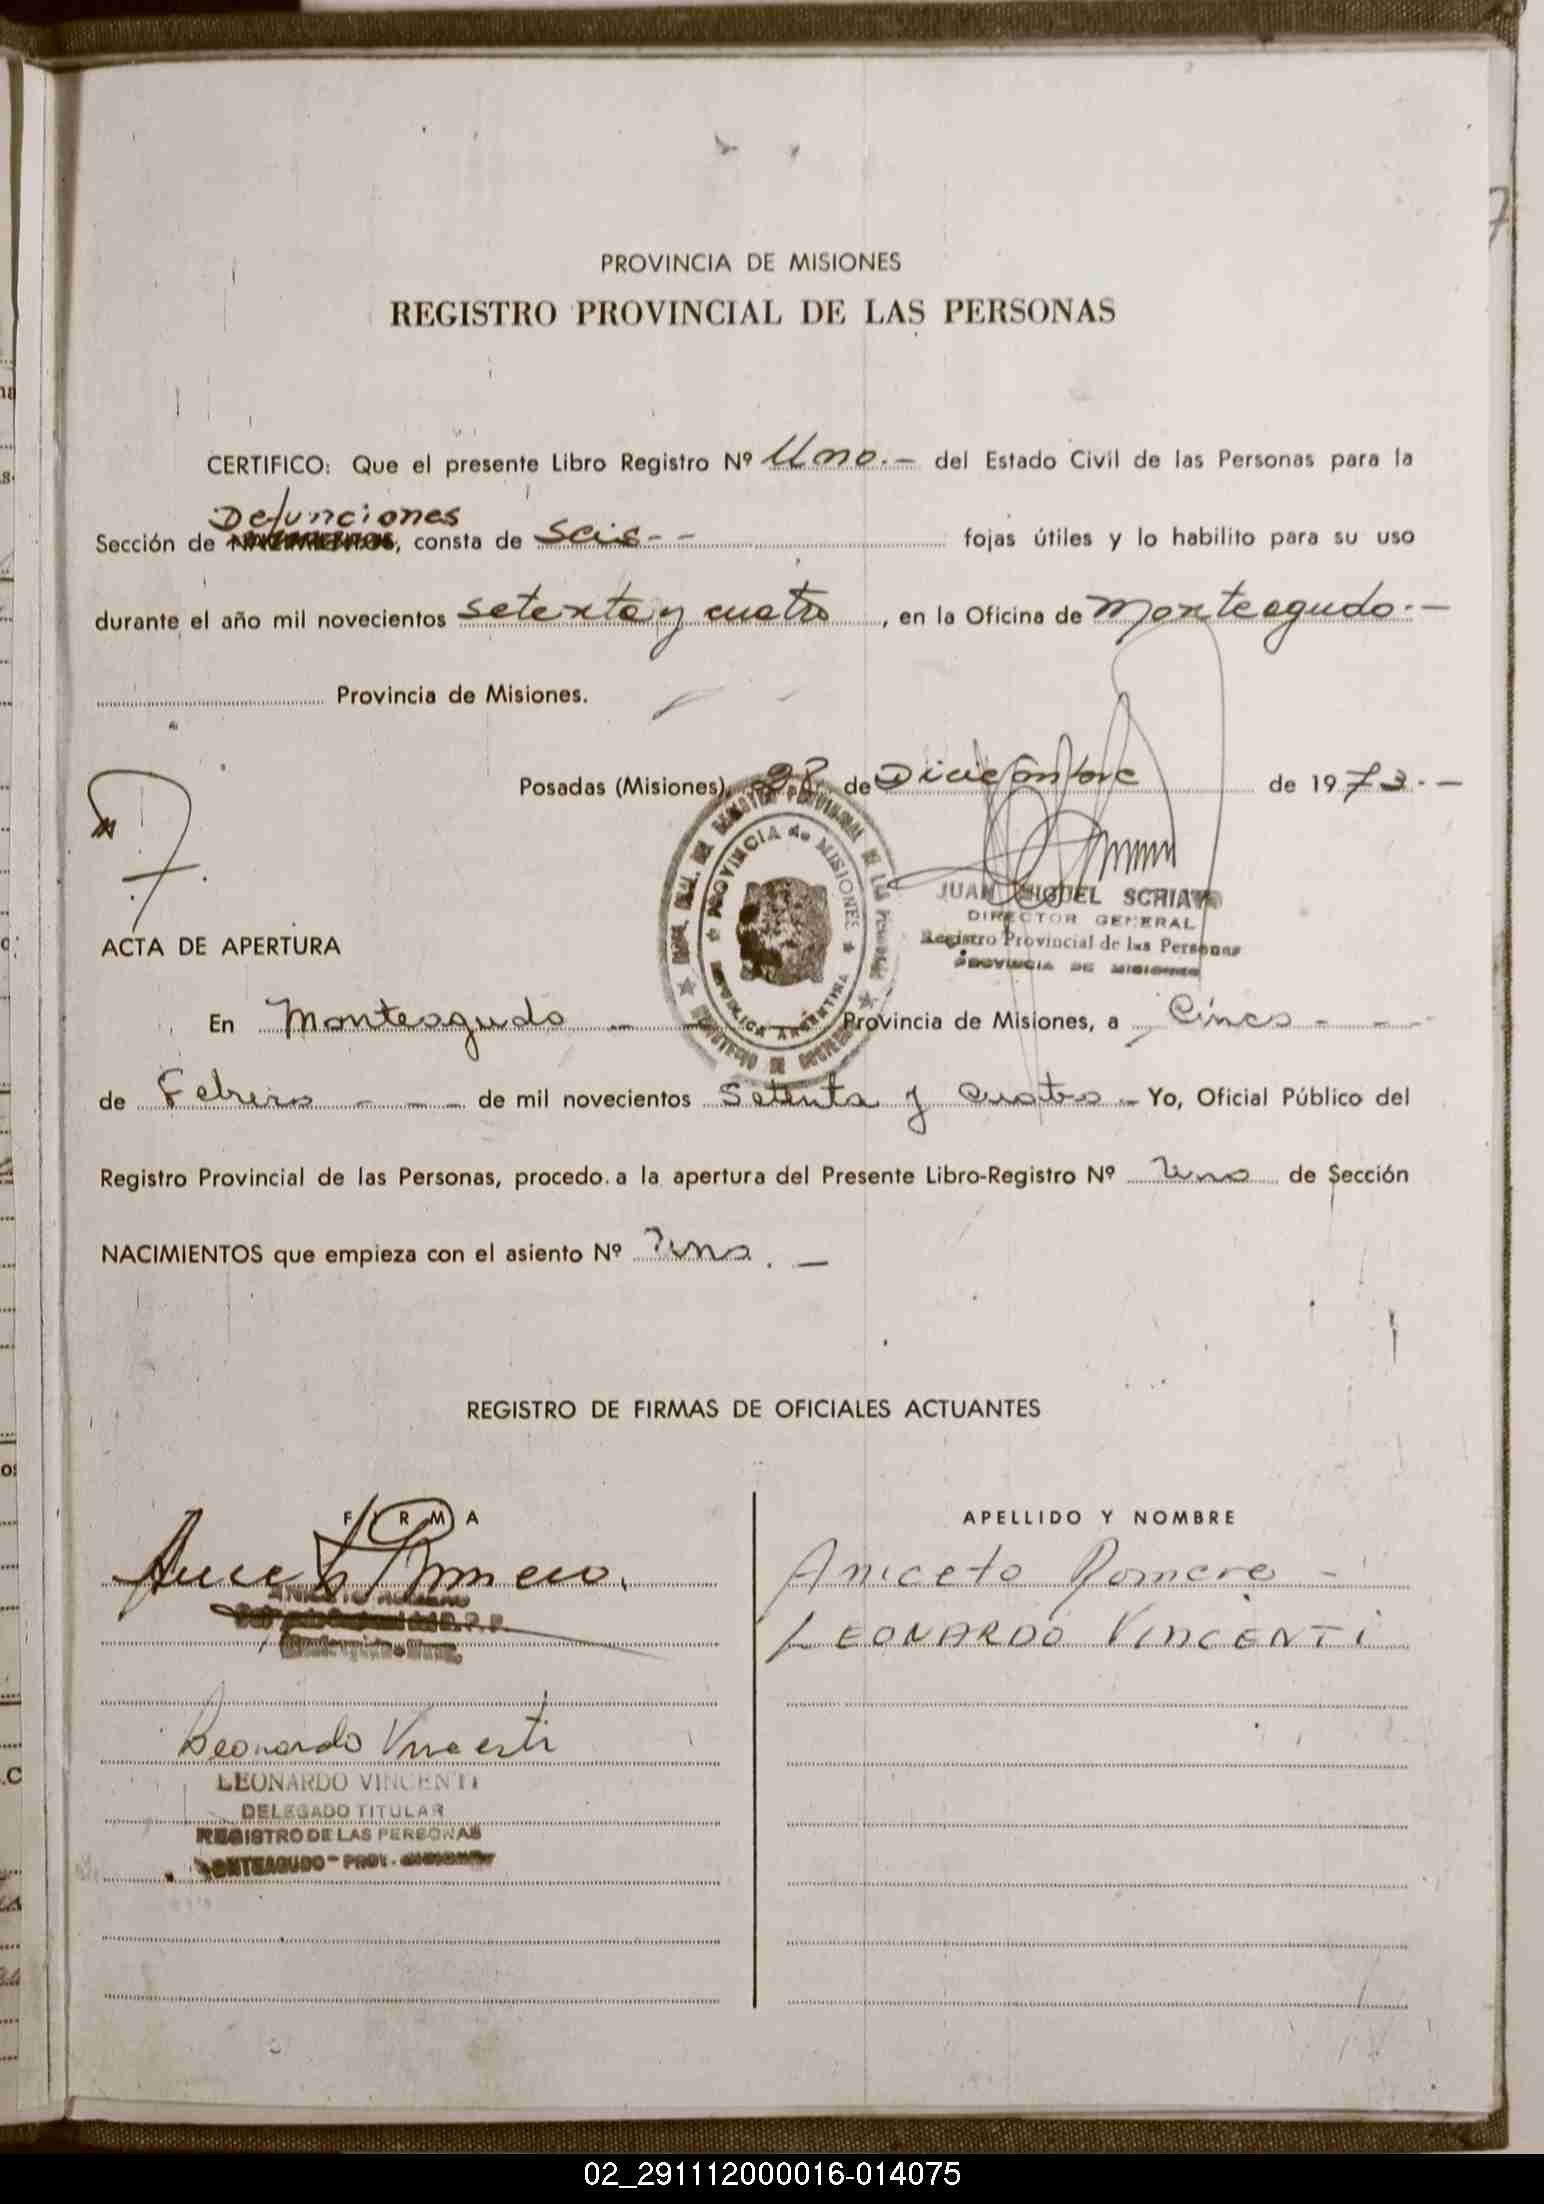 7
PROVINCIA DE MISIONES
REGISTRO PROVINCIAL DE LAS PERSONAS
CERTIFICO: Que el presente Libro Registro Nº Uno.- del Estado Civil de las Personas para la
Defunciones
Sección de NACIMIENTOS, consta de Seis-- fojas útiles y lo habilito para su uso
durante el año mil novecientos setenta y cuatro, en la Oficina de Monteagudo.-
Provincia de Misiones.
Posadas (Misiones), 28 de Diciembre de 1973.-
PROVINCIA de MISIONES
REPUBLICA ARGENTINA
JUAN MIGUEL SCHIAVO
DIRECTOR GENERAL
Registro Provincial de las Personas
PROVINCIA DE MISIONES
ACTA DE APERTURA
En Monteagudo - - Provincia de Misiones, a Cinco - - -
de Febrero - - - de mil novecientos Setenta y Cuatro - Yo, Oficial Público del
Registro Provincial de las Personas, procedo a la apertura del Presente Libro-Registro Nº Uno de Sección
NACIMIENTOS que empieza con el asiento Nº Uno. -
REGISTRO DE FIRMAS DE OFICIALES ACTUANTES
FIRMA
APELLIDO Y NOMBRE
Aniceto Romero.
Aniceto Romero -
ANICETO ROMERO
LEONARDO VINCENTI
Leonardo Vincenti
LEONARDO VINCENTI
DELEGADO TITULAR
REGISTRO DE LAS PERSONAS
MONTEAGUDO - PROV. MISIONES
02_291112000016-014075